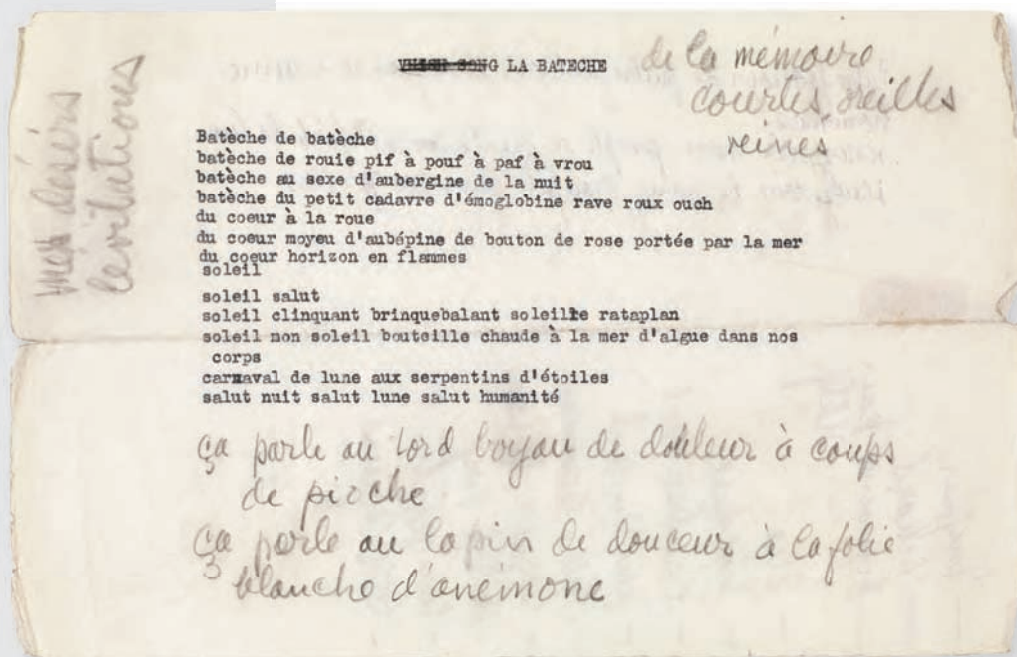 LA BATECHE
de la mémoire
courtes oreilles
reines
mes désirs
lévitations
Batèche de batèche
batèche de rouie pif à pouf à paf à vrou
batèche au sexe d'aubergine de la nuit
batèche du petit cadavre d'émoglobine rave roux ouch
du coeur à la roue
du coeur moyeu d'aubépine de bouton de rose portée par la mer
du coeur horizon en flammes
soleil
soleil salut
soleil clinquant brinquebalant soleille rataplan
soleil non soleil bouteille chaude à la mer d'algue dans nos
corps
carnaval de lune aux serpentins d'étoiles
salut nuit salut lune salut humanité
ça parle au tord boyau de douleur à coups
de pioche
ça parle au lapin de douceur à la folie
blanche d'anémone